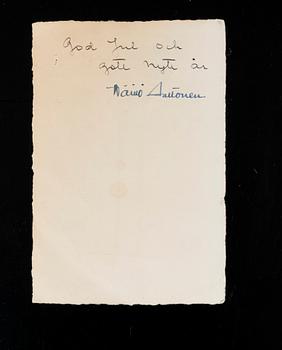 God Jul och
gott nytt år
Wäinö Aaltonen